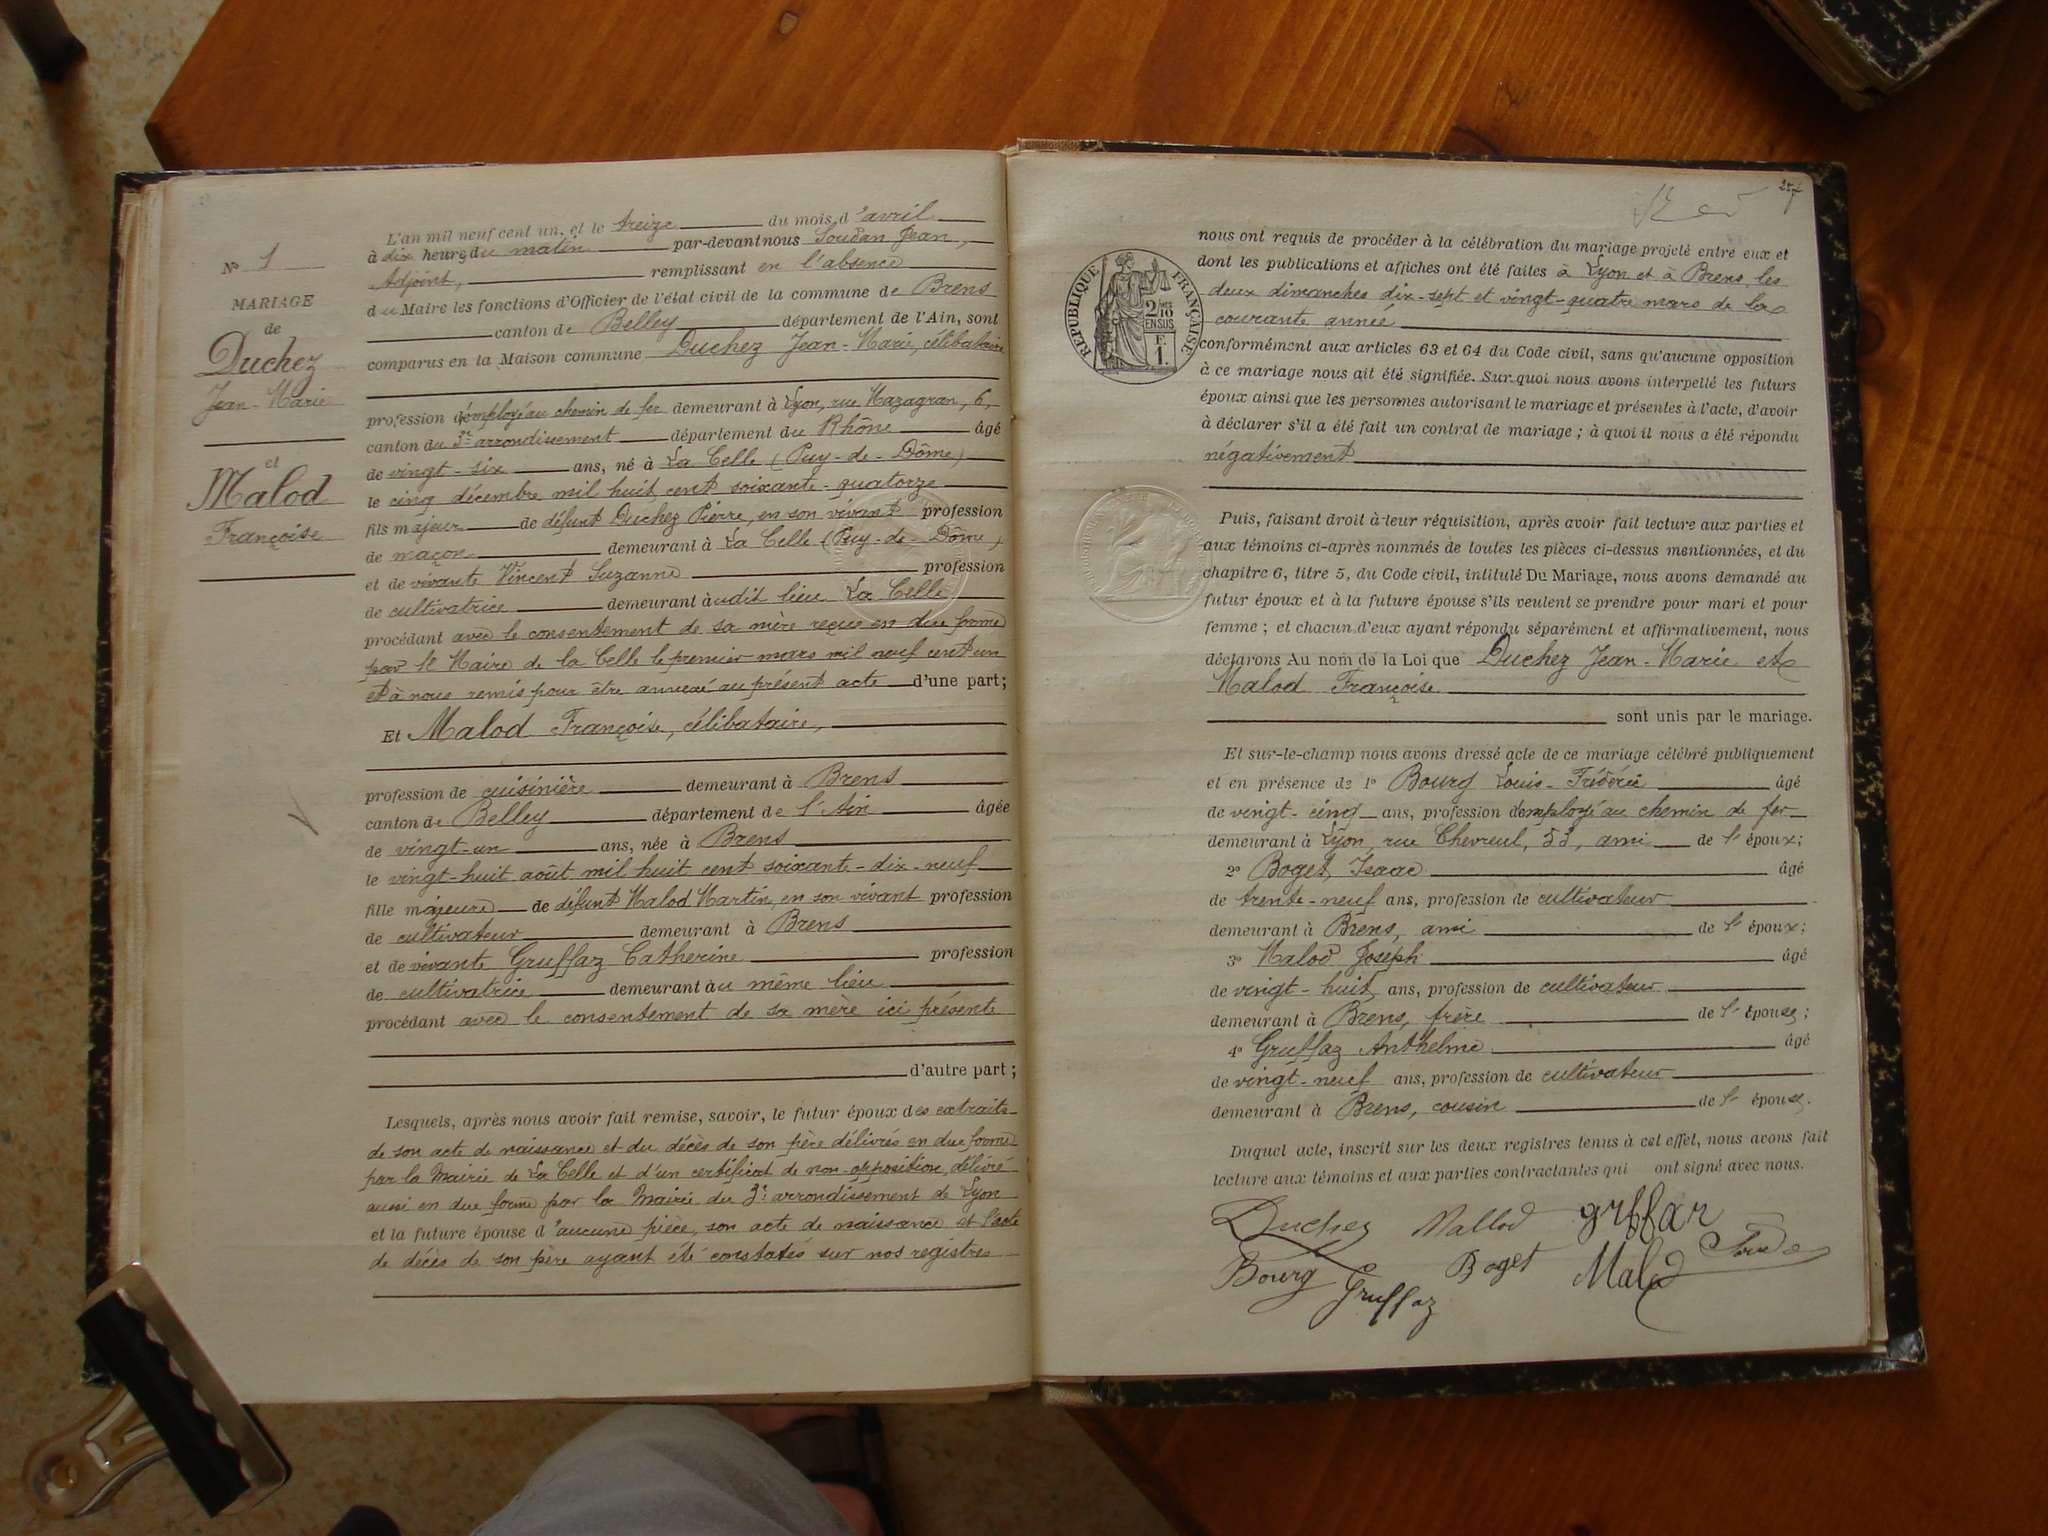 N° 1
MARIAGE
de
Duchez
Jean-Marie
et
Malod
Françoise
L'an mil neuf cent un, et le treize du mois d'avril
à dix heures du matin par-devant nous Soudan Jean,
Adjoint, remplissant en l'absence
du Maire les fonctions d'Officier de l'état civil de la commune de Brens
canton de Belley département de l'Ain, sont
comparus en la Maison commune Duchez Jean-Marie, célibataire
profession d'employé au chemin de fer demeurant à Lyon, rue Mazagran, 6,
canton du 3e arrondissement département du Rhône âgé
de vingt-six ans, né à La Celle (Puy-de-Dôme)
le cinq décembre mil huit cent soixante-quatorze
fils majeur de défunt Duchez Pierre, en son vivant profession
de maçon demeurant à La Celle (Puy-de-Dôme)
et de vivante Vincent Suzanne profession
de cultivatrice demeurant audit lieu La Celle
procédant avec le consentement de sa mère reçue en due forme
par le Maire de la Celle le premier mars mil neuf cent un
et à nous remis pour être annexé au présent acte d'une part;
Et Malod Françoise, célibataire,
profession de cuisinière demeurant à Brens
canton de Belley département de l'Ain âgée
de vingt-un ans, née à Brens
le vingt-huit août mil huit cent soixante-dix-neuf
fille majeure de défunt Malod Martin, en son vivant profession
de cultivateur demeurant à Brens
et de vivante Gruffaz Catherine profession
de cultivatrice demeurant au même lieu
procédant avec le consentement de sa mère ici présente
d'autre part;
Lesquels, après nous avoir fait remise, savoir, le futur époux des extraits
de son acte de naissance et du décès de son père délivrés en due forme
par la Mairie de La Celle et d'un certificat de non-opposition, délivré
aussi en due forme par la Mairie du 3e arrondissement de Lyon
et la future épouse d'aucune pièce, son acte de naissance et l'acte
de décès de son père ayant été constatés sur nos registres
27
RÉPUBLIQUE FRANÇAISE
2/10
EN SUS
F.
1.
nous ont requis de procéder à la célébration du mariage projeté entre eux et
dont les publications et affiches ont été faites à Lyon et à Brens, les
deux dimanches dix-sept et vingt-quatre mars de la
courante année
conformément aux articles 63 et 64 du Code civil, sans qu'aucune opposition
à ce mariage nous ait été signifiée. Sur quoi nous avons interpellé les futurs
époux ainsi que les personnes autorisant le mariage et présentes à l'acte, d'avoir
à déclarer s'il a été fait un contrat de mariage; à quoi il nous a été répondu
négativement
Puis, faisant droit à leur réquisition, après avoir fait lecture aux parties et
aux témoins ci-après nommés de toutes les pièces ci-dessus mentionnées, et du
chapitre 6, titre 5, du Code civil, intitulé Du Mariage, nous avons demandé au
futur époux et à la future épouse s'ils veulent se prendre pour mari et pour
femme; et chacun d'eux ayant répondu séparément et affirmativement, nous
déclarons Au nom de la Loi que Duchez Jean-Marie et
Malod Françoise
sont unis par le mariage.
Et sur-le-champ nous avons dressé acte de ce mariage célébré publiquement
et en présence de 1° Bourg Louis-Frédéric âgé
de vingt-cinq ans, profession d'employé au chemin de fer
demeurant à Lyon, rue Chevreul, 53, ami de l'époux;
2° Boget Isaac âgé
de trente-neuf ans, profession de cultivateur
demeurant à Brens, ami de l'époux;
3° Malod Joseph âgé
de vingt-huit ans, profession de cultivateur
demeurant à Brens, frère de l'épouse;
4° Gruffaz Anthelme âgé
de vingt-neuf ans, profession de cultivateur
demeurant à Brens, cousin de l'épouse.
Duquel acte, inscrit sur les deux registres tenus à cet effet, nous avons fait
lecture aux témoins et aux parties contractantes qui ont signé avec nous.
Duchez Mallod gruffar
Bourg Gruffaz Boget Malod